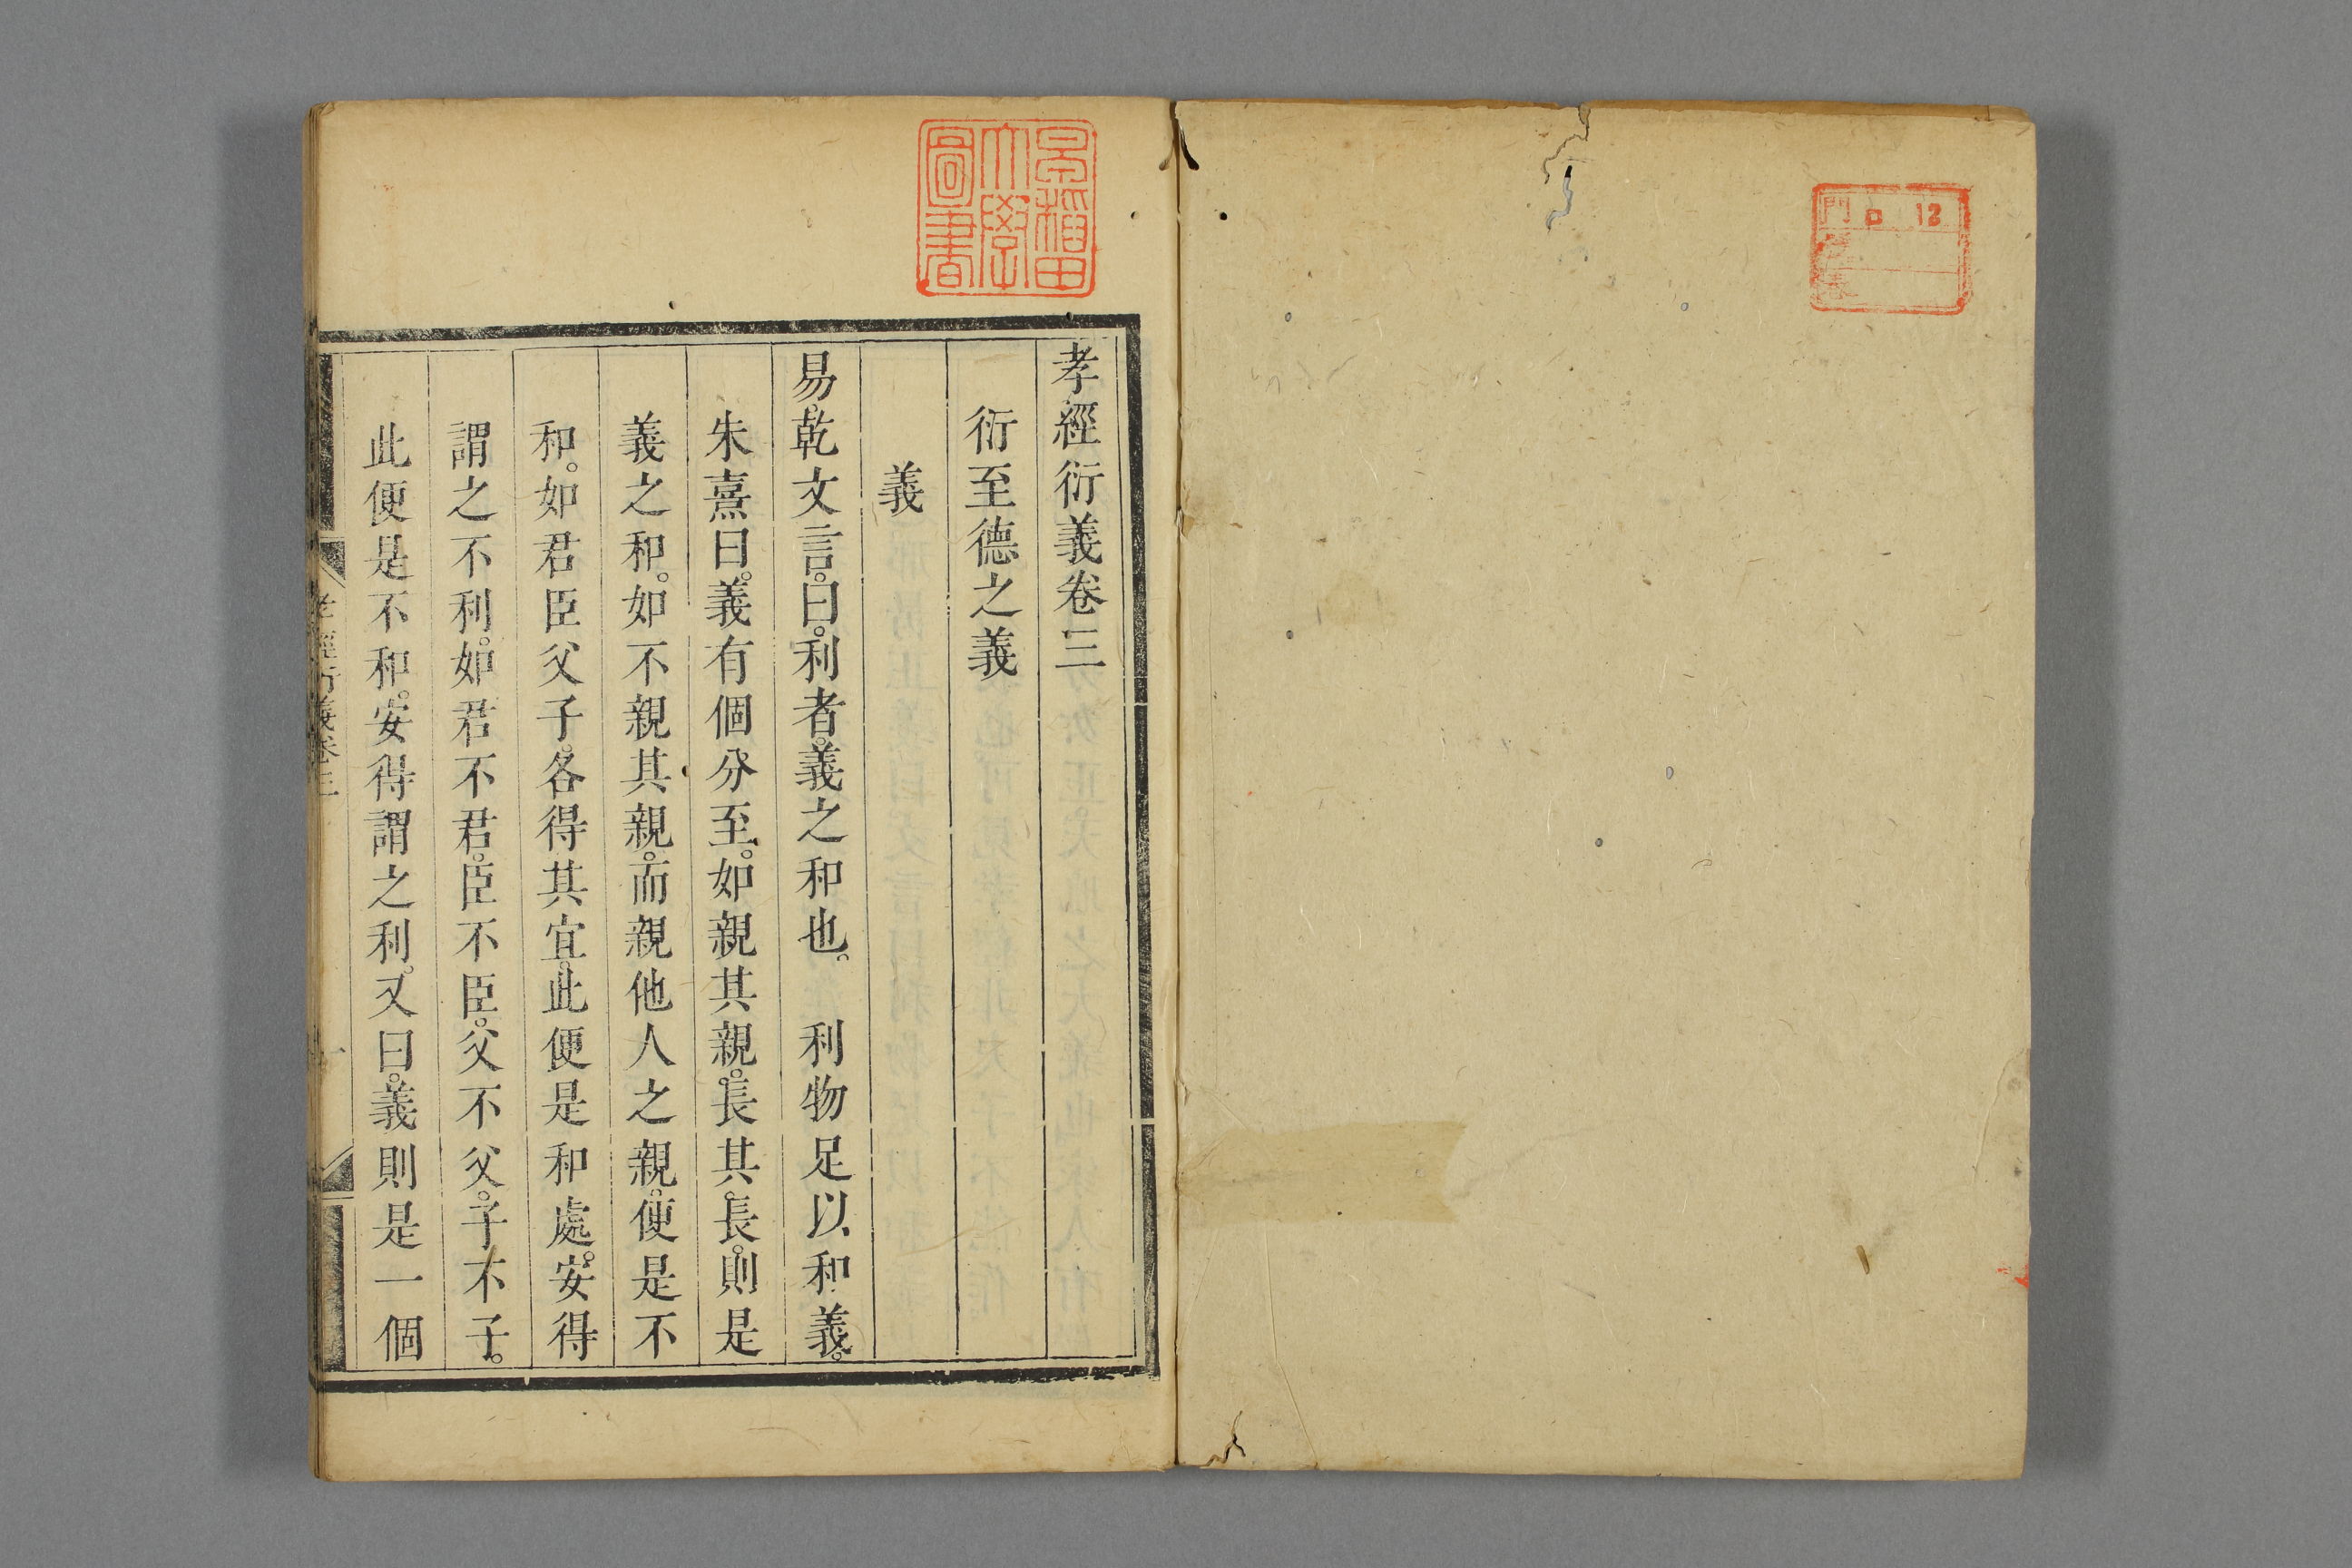 門 ロ 12
號
卷
早稲田
大學
圖書
孝經衍義卷三
衍至德之義
義
易。乾文言。曰。利者。義之和也。　利物足以和義。
朱熹曰。義有個分至。如親其親。長其長。則是
義之和。如不親其親。而親他人之親。便是不
和。如君臣父子。各得其宜。此便是和處。安得
謂之不利。如君不君。臣不臣。父不父。子不子。
此便是不和。安得謂之利。又曰。義則是一個
孝經衍義卷三
一